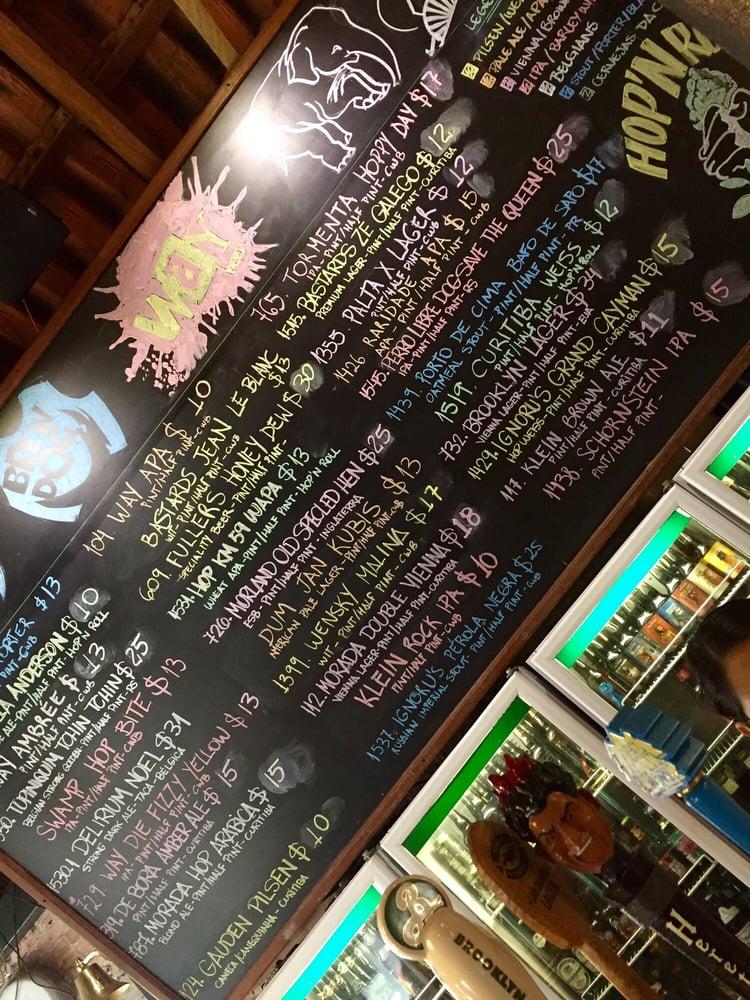 LEGE
PILSEN/WEI
PALE ALE/APA
VIENNA/BROWN
IPA/BARLEY WI
BELGIANS
STOUT/PORTER/BLA
CERVEJAS DA C
HOP'N R
WAY
BREW DOG
765. TORMENTA HOPPY DAY $17
IPA - PINT/HALF PINT - CWB
1515. BASTARDS ZÉ GALEGO $12
PREMIUM LAGER - PINT/HALF PINT - CURITIBA
1353. PALTA X LAGER $12
PINT/HALF PINT - CWB
1426. RARIDADE APA $15
APA - PINT/HALF PINT - CWB
1545. PERRO LIBRE DOG SAVE THE QUEEN $25
IPA - PINT/HALF PINT - RS
1439. PORTO DE CIMA BAFO DE SAPO $17
OATMEAL STOUT - PINT/HALF PINT PR
1519 CURITIBA WEISS $12
PINT/HALF PINT - HOP'N ROLL
132. BROOKLYN LAGER $34
VIENNA LAGER - PINT/HALF PINT - EUA
1429. IGNORUS GRAND CAYMAN $15
HOP WEISS - PINT/HALF PINT - CURITIBA
1117. KLEIN BROWN ALE $11
PINT/HALF PINT - CURITIBA
1138. SCHORNSTEIN IPA $15
PINT/HALF PINT -
104. WAY APA $10
PINT/HALF PINT - CWB
BASTARDS JEAN LE BLANC $13
WIT - PINT/HALF PINT - CWB
609. FULLERS HONEY DEW $30
SPECIALITY BEER - PINT/HALF PINT -
1534. HOP KM 59 WAPA $13
WHEAT APA - PINT/HALF PINT - HOP'N ROLL
720. MORLAND OLD SPECLED HEN $25
ESB - PINT/HALF PINT / INGLATERRA
DUM JAN KUBIS $13
AMERICAN PALE LAGER - PINT/HALF PINT - CWB
1399. WENSKY MALINA $17
WIT - PINT/HALF PINT - CWB
112. MORADA DOUBLE VIENNA $18
VIENNA LAGER - PINT/HALF PINT - CURITIBA
KLEIN ROCK IPA $10
PINT/HALF PINT - CWB
1537. IGNORUS PEROLA NEGRA $25
RUSSIAN IMPERIAL STOUT - PINT/HALF PINT - CWB
ORTER $13
PINT - CWB
LA ANDERSON $10
ALE - PINT/HALF PINT - HOP'N ROLL
WAY AMBRÉE $13
PINT/HALF PINT - CWB
TUPINIQUIM TCHIN TCHIN $25
BELGIAN STRONG GOLDEN - PINT/HALF PINT - RS
SWAMP HOP BITE $13
PA - PINT/HALF PINT - CWB
1530.1 DELIRIUM NOEL $31
STRONG DARK ALE - TAÇA - BÉLGICA
729. WAY DIE FIZZY YELLOW $13
IPA - PINT/HALF PINT - CWB
DE BORA AMBER ALE $15
PINT/HALF PINT - CURITIBA
MORADA HOP ARABICA $15
BLOND ALE - PINT/HALF PINT - CURITIBA
24. GAUDEN PILSEN $10
CANECA/CANEQUINHA - CURITIBA
BROOKLYN
LAGER